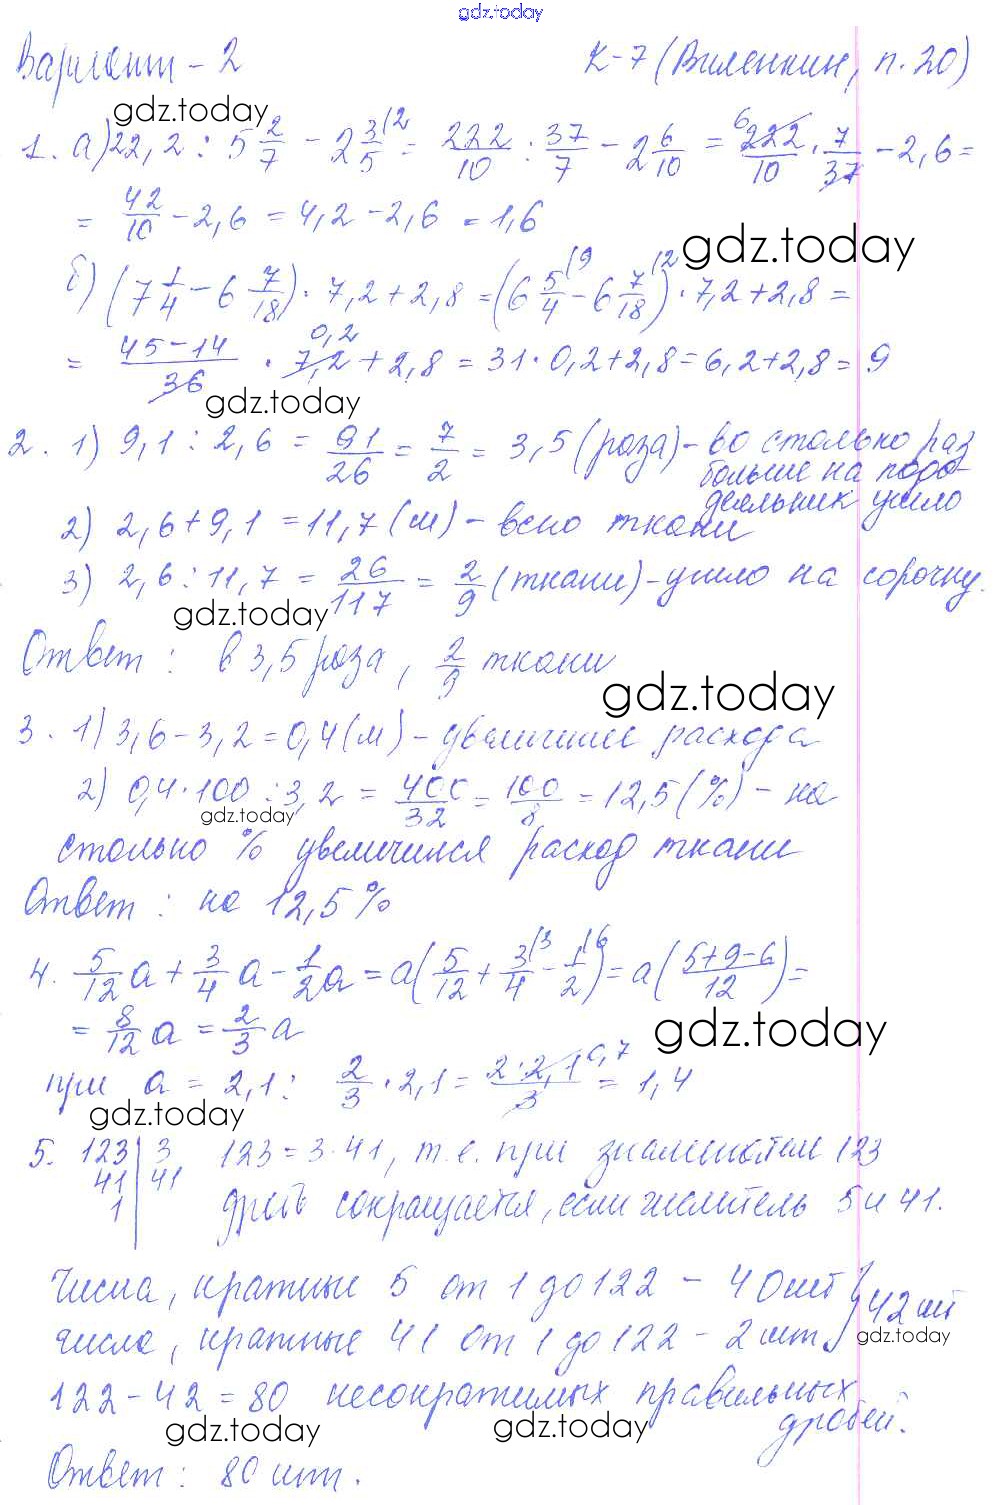 gdz.today
Вариант - 2 К-7 (Виленкин, п. 20)
gdz.today
1. а) 22,2 : 5 2/7 - 2 3/5 |2 = 222/10 : 37/7 - 2 6/10 = 6 222/10 · 7/37 - 2,6 =
= 42/10 - 2,6 = 4,2 - 2,6 = 1,6
gdz.today
б) (7 1/4 - 6 7/18) · 7,2 + 2,8 = (6 5/4 |9 - 6 7/18 |2) · 7,2 + 2,8 =
= 45-14/36 · 7,2 0,2 + 2,8 = 31 · 0,2 + 2,8 = 6,2 + 2,8 = 9
gdz.today
2. 1) 9,1 : 2,6 = 91/26 = 7/2 = 3,5 (раза) - во столько раз
больше на подо-
деяльник ушло
2) 2,6 + 9,1 = 11,7 (м) - всего ткани
3) 2,6 : 11,7 = 26/117 = 2/9 (ткани) - ушло на сорочку.
gdz.today
Ответ: в 3,5 раза, 2/9 ткани
gdz.today
3. 1) 3,6 - 3,2 = 0,4 (м) - увеличение расхода
2) 0,4 · 100 : 3,2 = 400/32 = 100/8 = 12,5 (%) - на
gdz.today
столько % увеличился расход ткани
Ответ: на 12,5 %
4. 5/12 a + 3/4 a - 1/2 a = a (5/12 + 3/4 |3 - 1/2 |6) = a (5+9-6/12) =
= 8/12 a = 2/3 a
gdz.today
при a = 2,1: 2/3 · 2,1 = 2·2,1 0,7/3 = 1,4
gdz.today
5. 123 | 3 123 = 3 · 41, т.е. при знаменателе 123
41 | 41 дробь сокращается, если числитель 5 и 41.
1 |
Числа, кратные 5 от 1 до 122 - 40 шт } 42 шт
числа, кратные 41 от 1 до 122 - 2 шт.
gdz.today
122 - 42 = 80 несократимых правильных
дробей.
gdz.today gdz.today
Ответ: 80 шт.